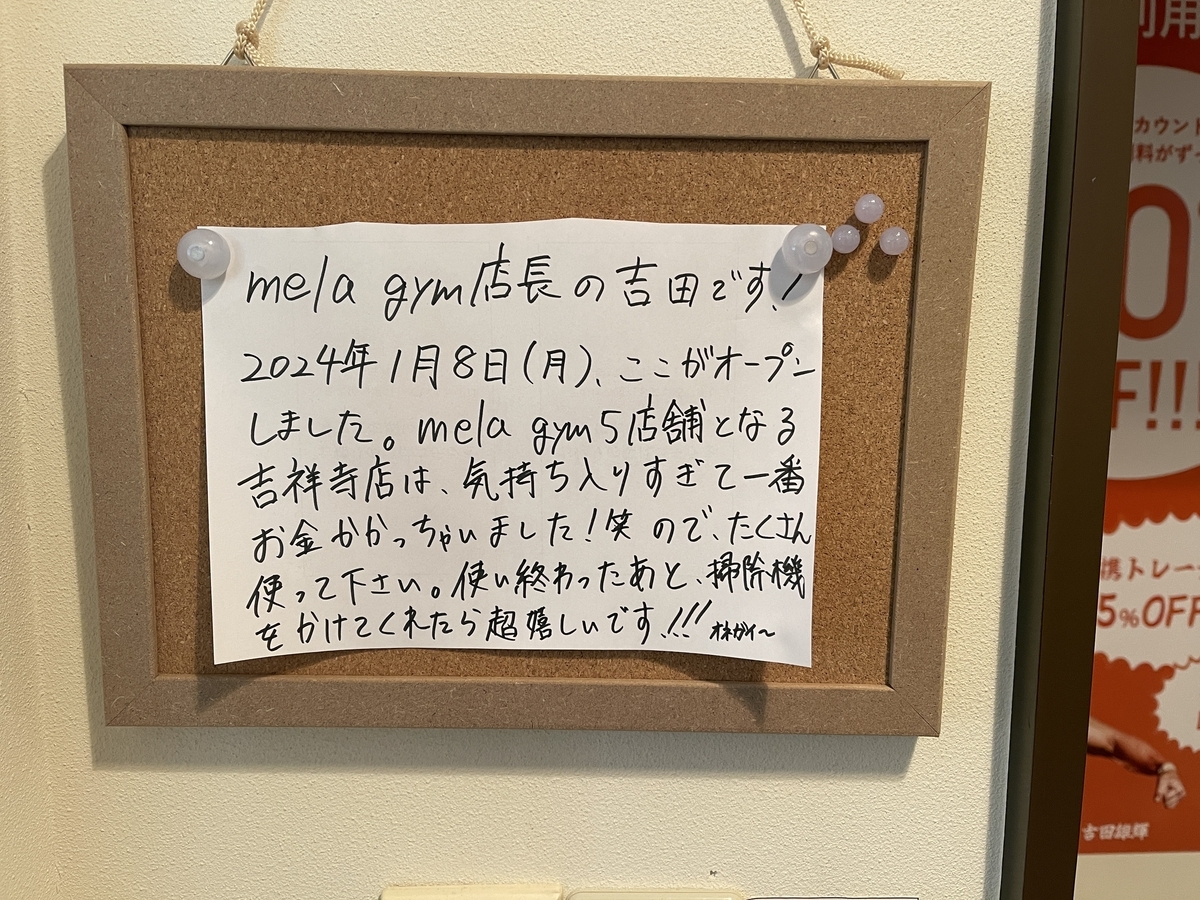 mela gym店長の吉田です!
2024年1月8日(月)、ここがオープン
しました。mela gym5店舗となる
吉祥寺店は、気持ち入りすぎて一番
お金かかっちゃいました!笑 ので、たくさん
使って下さい。使い終わったあと、掃除機
をかけてくれたら超嬉しいです!!! オネガイ〜
利用
カウント
料がず
F!!!
携トレー
5%OFF
吉田雄輝